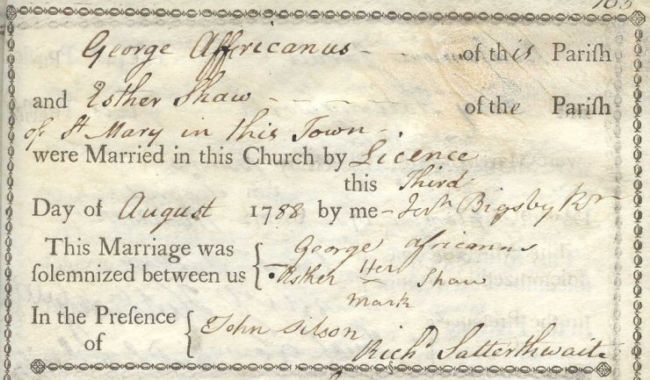 George Affricanus - - - .of this Pariſh
and Esther Shaw - - - - - of the Pariſh
of St Mary in this Town -.
were Married in this Church by Licence
this Third
Day of August 1788 by me - Jer. Bigsby Rr
This Marriage was George Africanus
ſolemnized between us Esther Her Shaw
Mark
In the Presence John Dilson
of Richd Satterthwaite